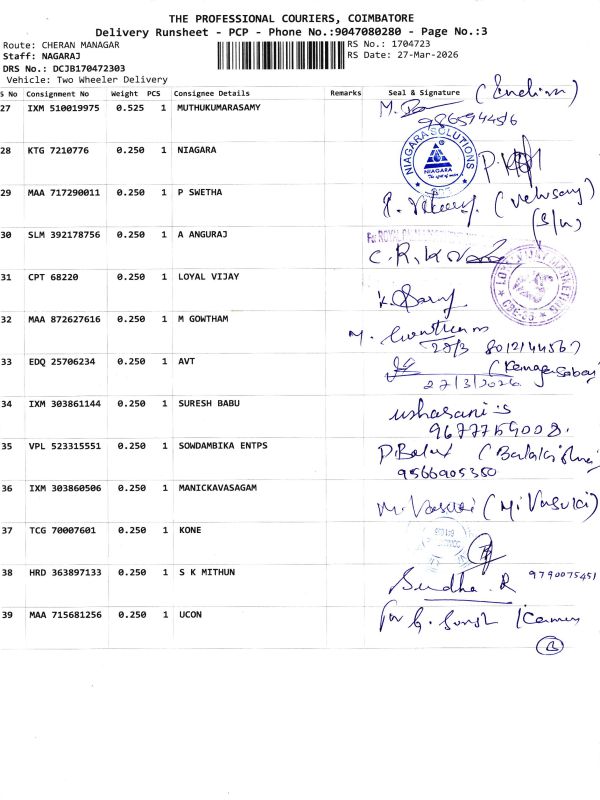 THE PROFESSIONAL COURIERS, COIMBATORE
Delivery Runsheet - PCP - Phone No.:9047080280 - Page No.:3
Route: CHERAN MANAGAR RS No.: 1704723
Staff: NAGARAJ RS Date: 27-Mar-2026
DRS No.: DCJB170472303
Vehicle: Two Wheeler Delivery
S No Consignment No Weight PCS Consignee Details Remarks Seal & Signature
27 IXM 510019975 0.525 1 MUTHUKUMARASAMY M.
28 KTG 7210776 0.250 1 NIAGARA
NIAGARA SOLUTIONS
NIAGARA
29 MAA 717290011 0.250 1 P SWETHA
(S/W)
30 SLM 392178756 0.250 1 A ANGURAJ
C.R.K
31 CPT 68220 0.250 1 LOYAL VIJAY
32 MAA 872627616 0.250 1 M GOWTHAM M. Gowtham
28/3 8012144567
33 EDQ 25706234 0.250 1 AVT
27/3/2026
34 IXM 303861144 0.250 1 SURESH BABU ushasani.s
9677759008.
35 VPL 523315551 0.250 1 SOWDAMBIKA ENTPS
9566905350
36 IXM 303860506 0.250 1 MANICKAVASAGAM M. Vasuki (M. Vasuki)
37 TCG 70007601 0.250 1 KONE
38 HRD 363897133 0.250 1 S K MITHUN Sudha. R 9790075451
39 MAA 715681256 0.250 1 UCON for G.